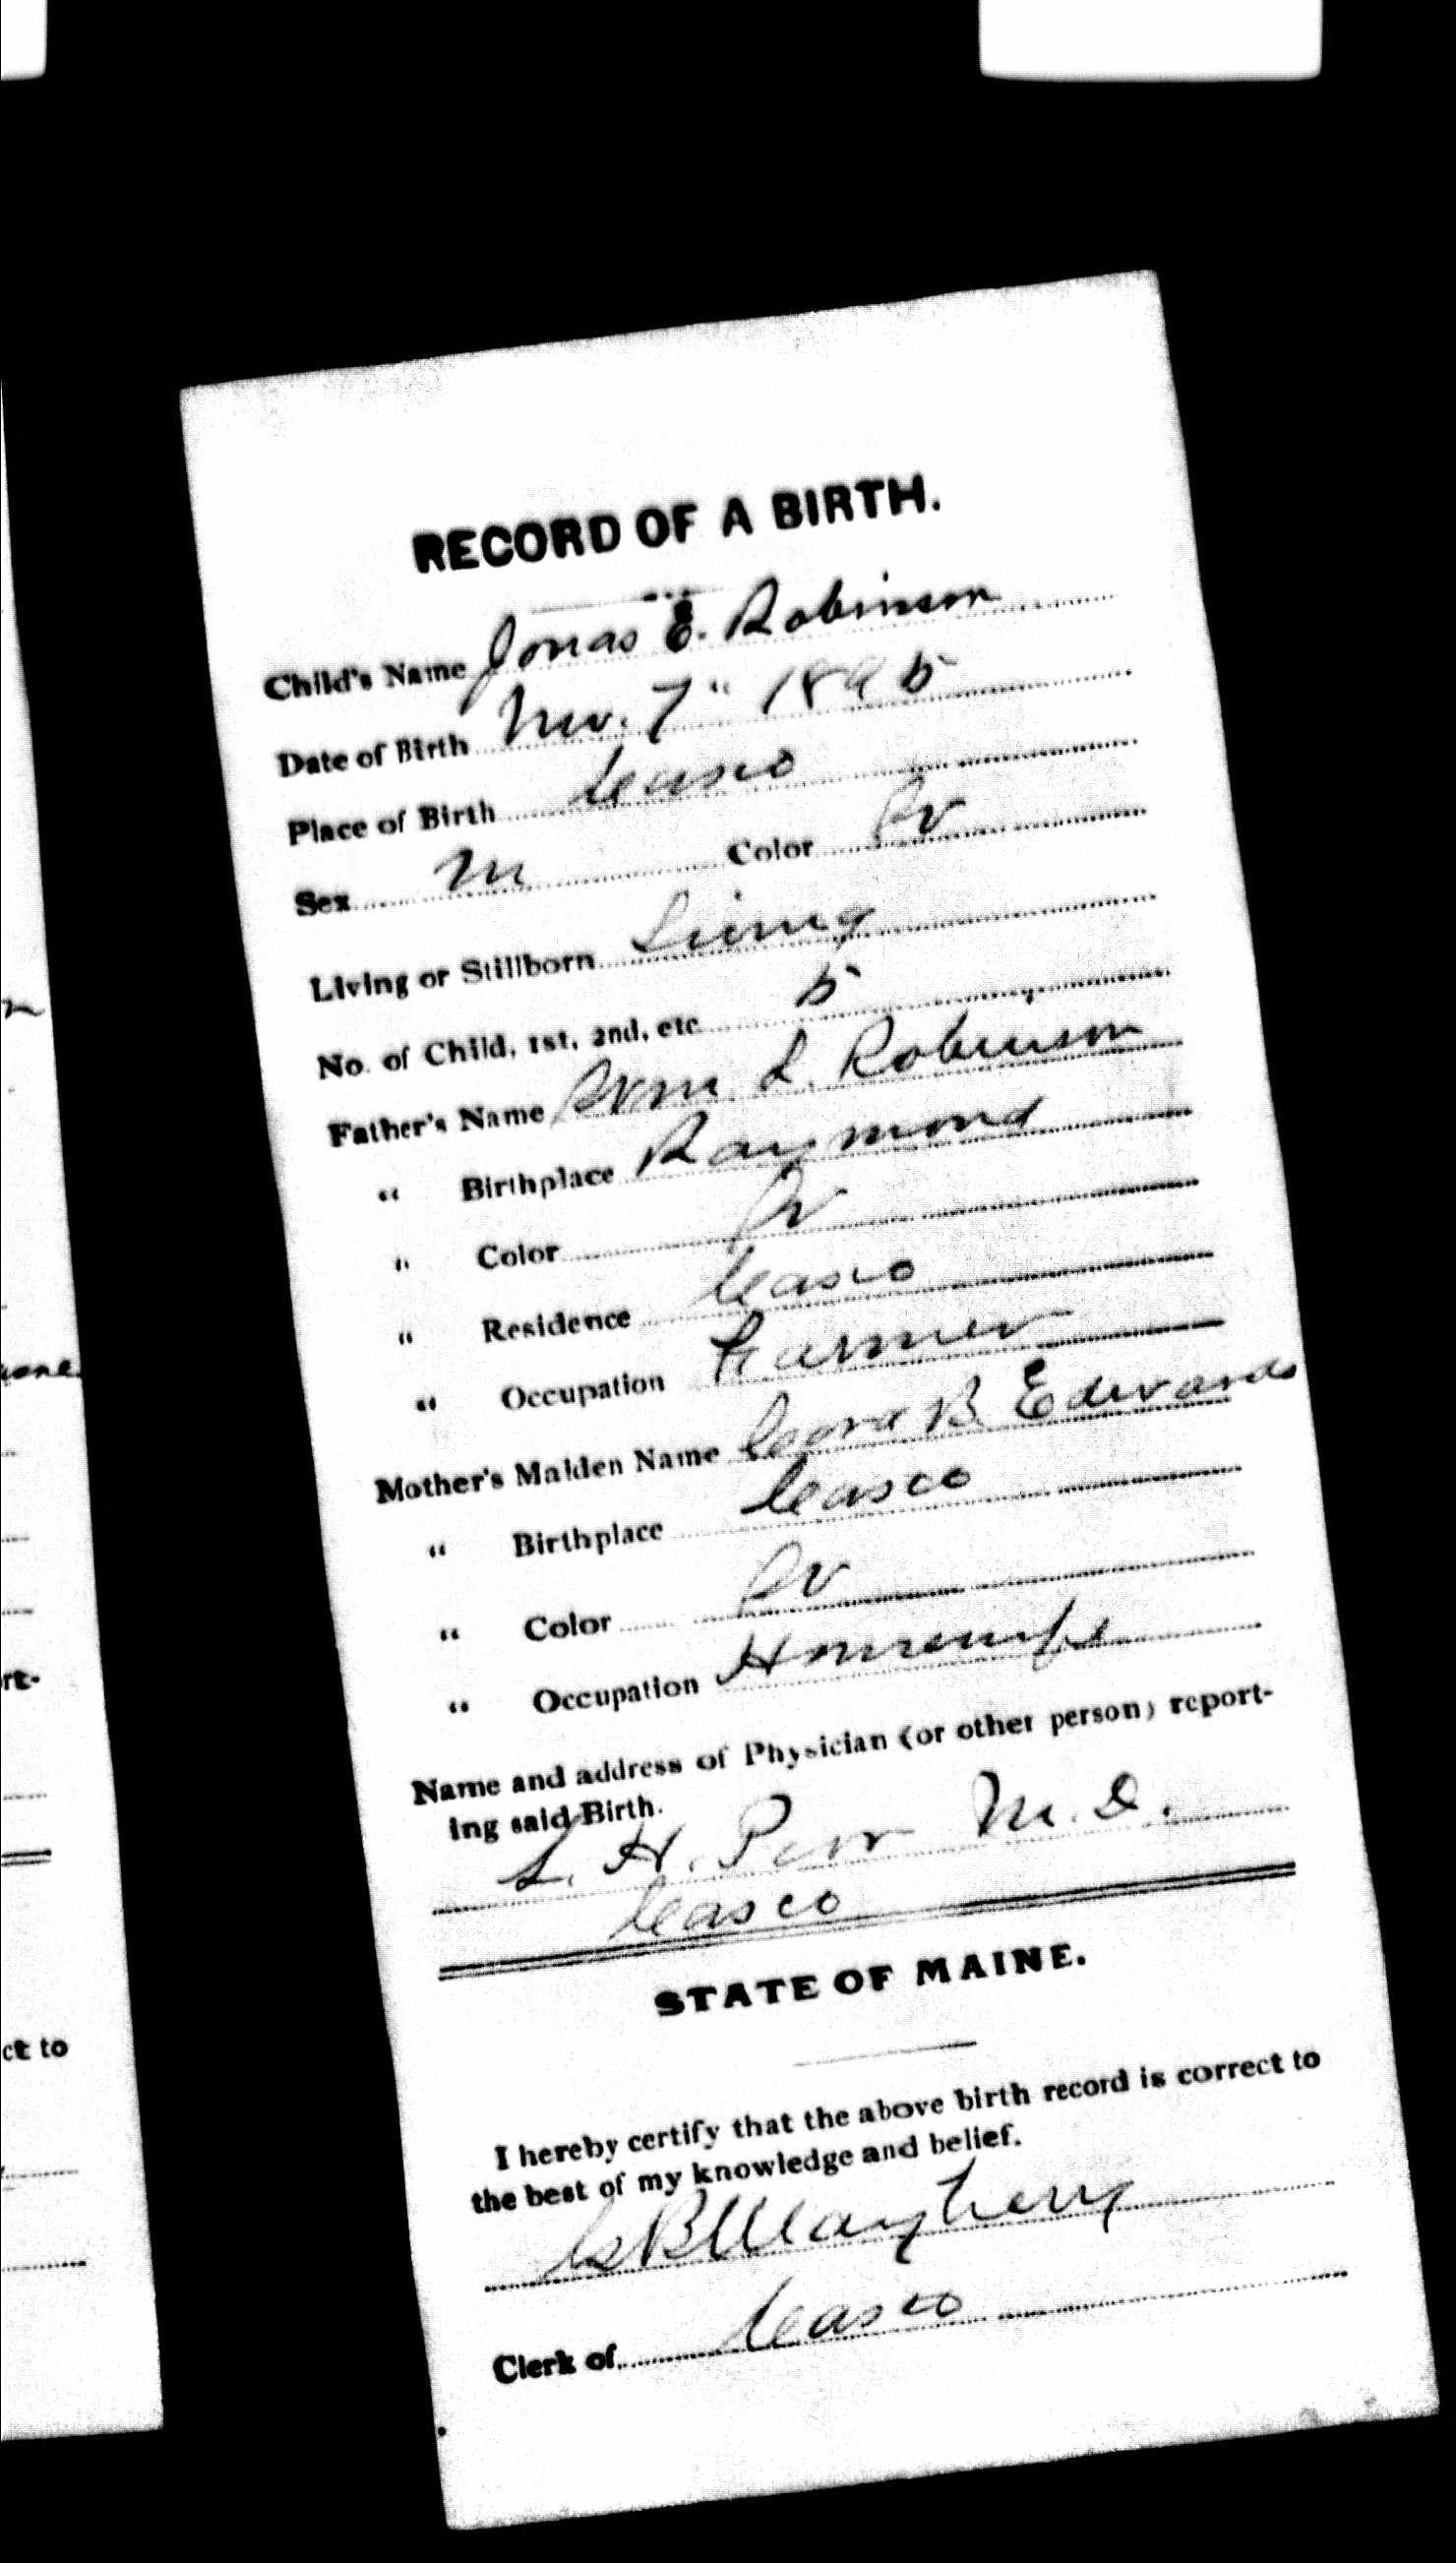 RECORD OF A BIRTH.
Child's Name Jonas E. Robinson
Date of Birth Nov. 7" 1895
Place of Birth Casco
Sex M Color W
Living or Stillborn Living
No. of Child, 1st, 2nd, etc 5
Father's Name Wm L. Robinson
" Birthplace Raymond
" Color W
" Residence Casco
" Occupation Farmer
Mother's Maiden Name B. Edwards
" Birthplace Casco
" Color W
" Occupation Housewife
Name and address of Physician (or other person) report-
ing said Birth.
L. H. M. D.
Casco
STATE OF MAINE.
I hereby certify that the above birth record is correct to
the best of my knowledge and belief.
Mayberry
Clerk of Casco
rt-
ct to